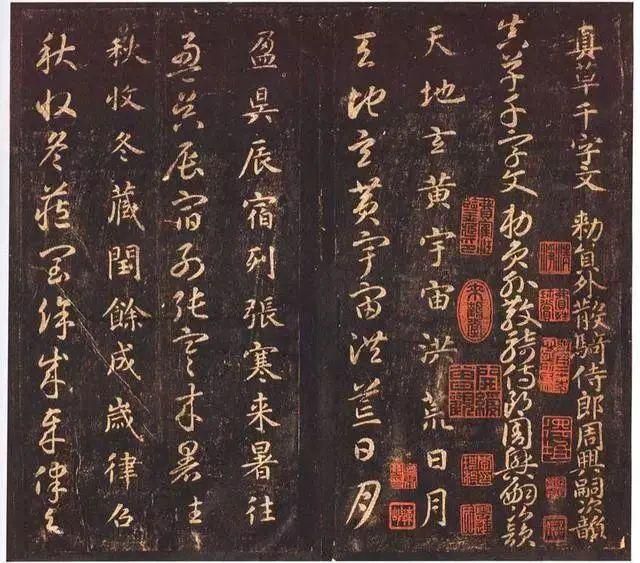 真草千字文 勅員外散騎侍郎周興嗣次韻
真草千字文 勅員外散騎侍郎周興嗣次韻
天地玄黃宇宙洪荒日月
天地玄黃宇宙洪荒日月
盈昃辰宿列張寒来暑往
盈昃辰宿列張寒来暑往
秋收冬藏閏餘成歲律召
秋收冬藏閏餘成歲律召